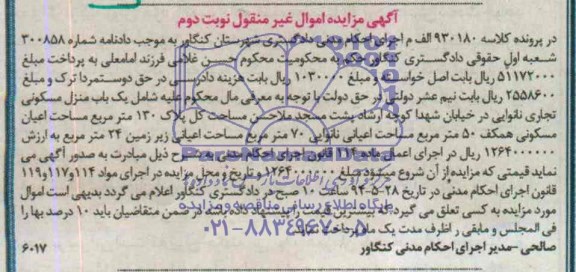 آگهی مزایده اموال غیر منقول نوبت دوم
در پرونده کلاسه ۹۳۰۱۸۰ الف م اجرای احکام مدنی دادگستری شهرستان کنگاور به موجب دادنامه شماره ۳۰۰۸۵۸
شعبه اول حقوقی دادگستری کنگاور حکم به محکومیت محکوم حسن غلامی فرزند امامعلی به پرداخت مبلغ
۵۱۱۷۲۰۰۰ ریال بابت اصل خواسته و مبلغ ۱۰۳۰۰۰۰ ریال بابت هزینه دادرسی در حق دوستمردا ترک و مبلغ
۲۵۵۸۶۰۰ ریال بابت نیم عشر دولتی در حق دولت با توجه به معرفی مال محکوم علیه شامل یک باب منزل مسکونی
تجاری نانوایی در خیابان شهدا کوچه ارشاد پشت مسجد ملاحسن مساحت کل پلاک ۱۳۰ متر مربع مساحت اعیان
مسکونی همکف ۵۰ متر مربع مساحت اعیانی نانوایی ۷۰ متر مربع مساحت اعیانی زیر زمین ۲۴ متر مربع به ارزش
۱۲۶۴۰۰۰۰۰۰ ریال در اجرای اعمال ماده ۱۱۴ قانون اجرای احکام مدنی به شرح ذیل مبادرت به صدور آگهی می
نماید قیمتی که مزایده از آن شروع میشود مبلغ ۱۲۶۴۰۰۰۰۰۰ و تاریخ و محل مزایده در اجرای مواد ۱۱۴و۱۱۷و۱۱۹
قانون اجرای احکام مدنی در تاریخ ۲۸-۵-۹۴ ساعت ۱۰ صبح در دادگستری کنگاور اعلام می گردد بدیهی است اموال
مورد مزایده به کسی تعلق می گیرد که بیشترین قیمت را پیشنهاد داده باشد در ضمن متقاضیان باید ۱۰ درصد بها را
فی المجلس و مابقی را ظرف مدت یک ماه پرداخت
صالحی -مدیر اجرای احکام مدنی کنگاور
۶۰۱۷
پایگاه اطلاع رسانی مناقصه و مزایده
۰۲۱-۸۸۳۴۹۶۷۰-۵